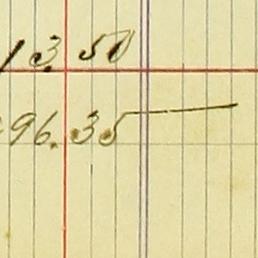 13.50
96.35